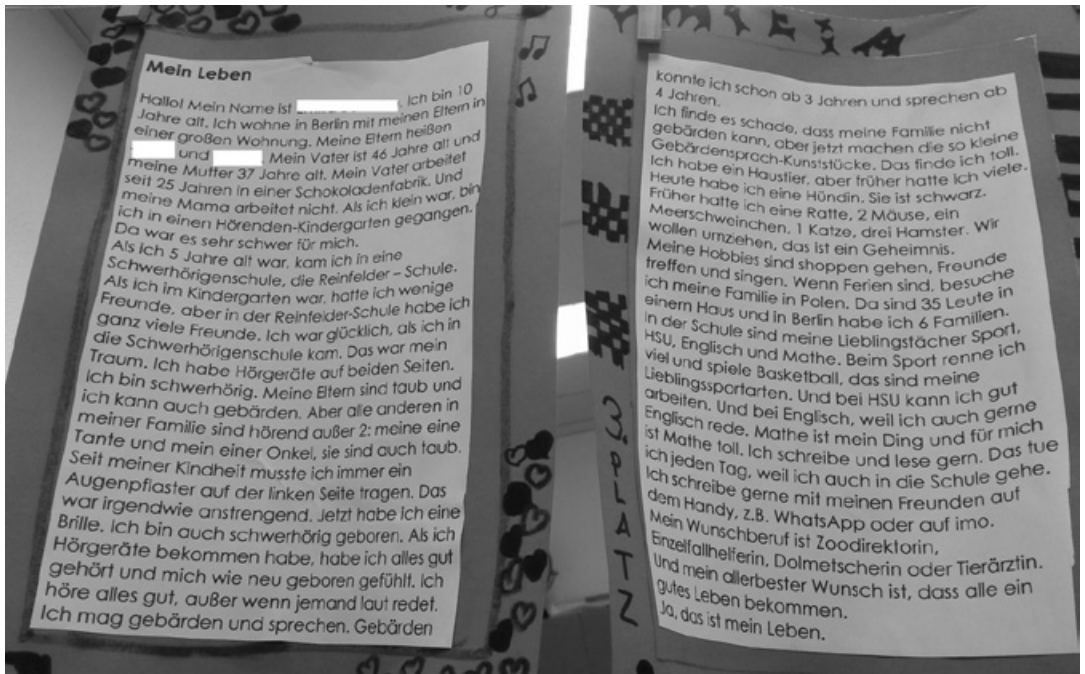 Mein Leben
Hallo! Mein Name ist . Ich bin 10
Jahre alt. Ich wohne in Berlin mit meinen Eltern in
einer großen Wohnung. Meine Eltern heißen
und . Mein Vater ist 46 Jahre alt und
meine Mutter 37 Jahre alt. Mein Vater arbeitet
seit 25 Jahren in einer Schokoladenfabrik. Und
meine Mama arbeitet nicht. Als ich klein war, bin
ich in einen Hörenden-Kindergarten gegangen.
Da war es sehr schwer für mich.
Als ich 5 Jahre alt war, kam ich in eine
Schwerhörigenschule, die Reinfelder – Schule.
Als ich im Kindergarten war, hatte ich wenige
Freunde, aber in der Reinfelder-Schule habe ich
ganz viele Freunde. Ich war glücklich, als ich in
die Schwerhörigenschule kam. Das war mein
Traum. Ich habe Hörgeräte auf beiden Seiten.
Ich bin schwerhörig. Meine Eltern sind taub und
ich kann auch gebärden. Aber alle anderen in
meiner Familie sind hörend außer 2: meine eine
Tante und mein einer Onkel, sie sind auch taub.
Seit meiner Kindheit musste ich immer ein
Augenpflaster auf der linken Seite tragen. Das
war irgendwie anstrengend. Jetzt habe ich eine
Brille. Ich bin auch schwerhörig geboren. Als ich
Hörgeräte bekommen habe, habe ich alles gut
gehört und mich wie neu geboren gefühlt. Ich
höre alles gut, außer wenn jemand laut redet.
Ich mag gebärden und sprechen. Gebärden
konnte ich schon ab 3 Jahren und sprechen ab
4 Jahren.
Ich finde es schade, dass meine Familie nicht
gebärden kann, aber jetzt machen die so kleine
Gebärdensprach-Kunststücke. Das finde ich toll.
Ich habe ein Haustier, aber früher hatte ich viele.
Heute habe ich eine Hündin. Sie ist schwarz.
Früher hatte ich eine Ratte, 2 Mäuse, ein
Meerschweinchen, 1 Katze, drei Hamster. Wir
wollen umziehen, das ist ein Geheimnis.
Meine Hobbies sind shoppen gehen, Freunde
treffen und singen. Wenn Ferien sind, besuche
ich meine Familie in Polen. Da sind 35 Leute in
einem Haus und in Berlin habe ich 6 Familien.
In der Schule sind meine Lieblingsfächer Sport,
HSU, Englisch und Mathe. Beim Sport renne ich
viel und spiele Basketball, das sind meine
Lieblingssportarten. Und bei HSU kann ich gut
arbeiten. Und bei Englisch, weil ich auch gerne
Englisch rede. Mathe ist mein Ding und für mich
ist Mathe toll. Ich schreibe und lese gern. Das tue
ich jeden Tag, weil ich auch in die Schule gehe.
Ich schreibe gerne mit meinen Freunden auf
dem Handy, z.B. WhatsApp oder auf imo.
Mein Wunschberuf ist Zoodirektorin,
Einzelfallhelferin, Dolmetscherin oder Tierärztin.
Und mein allerbester Wunsch ist, dass alle ein
gutes Leben bekommen.
Ja, das ist mein Leben.
3. PLATZ